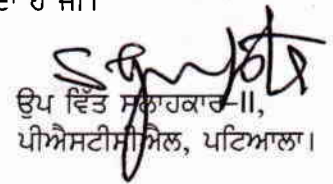 ਹੈ ਜੀ।
ਉਪ ਵਿੱਤ ਸਲਾਹਕਾਰ-II,
ਪੀਐਸਟੀਸੀਐਲ, ਪਟਿਆਲਾ।